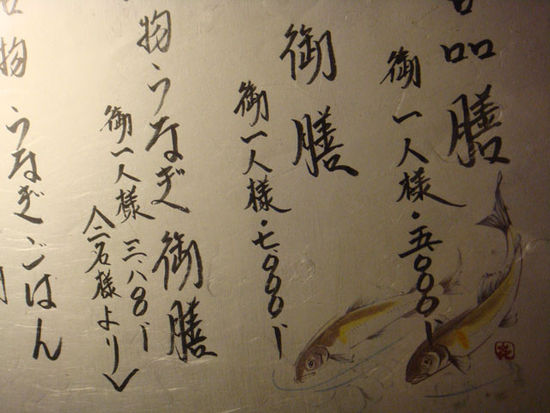 品膳
御一人様・五〇〇〇ー
御膳
御一人様・七、〇〇〇ー
物うなぎ御膳
御一人様 三、八〇〇ー
〈二名様より〉
物うなぎごはん